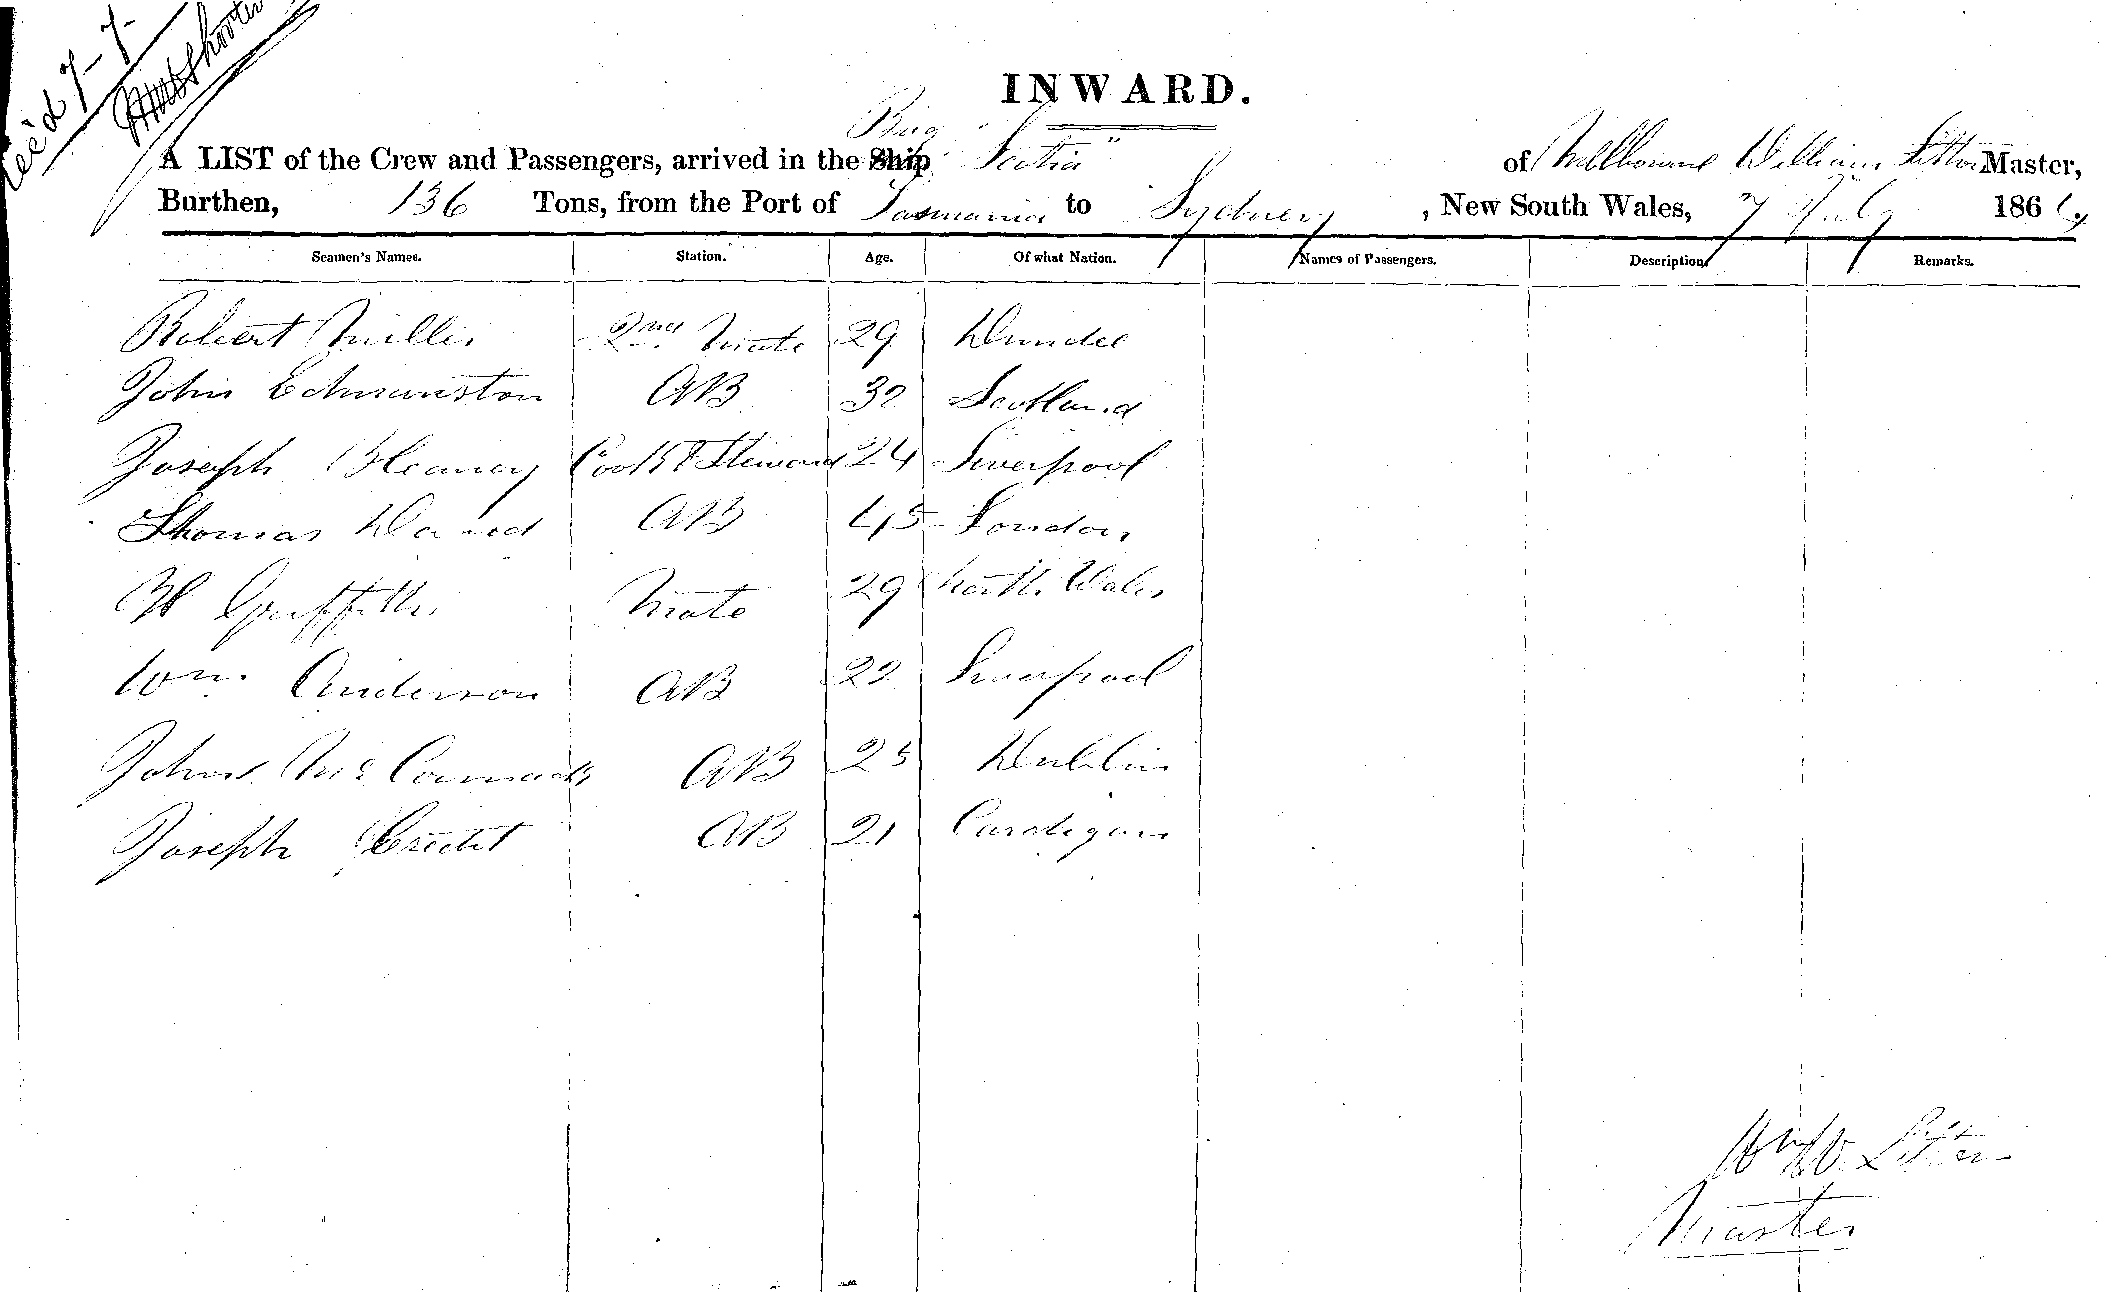 Rec'd 7-7-
INWARD.
Brig
A LIST of the Crew and Passengers, arrived in the Ship "Scotia" of Melbourne William Litton Master,
Burthen, 136 Tons, from the Port of Tasmania to Sydney, New South Wales, 7 July 186
Seamen's Names. Station. Age. Of what Nation. Names of Passengers. Description. Remarks.
Robert Miller 2nd Mate 29 Dundee
John Edmunston AB 32 Scotland
Joseph Cook & Steward 24 Liverpool
Thomas David AB 45 London
W Griffiths Mate 29 North Wales
Wm Anderson AB 22 Liverpool
John McCormack AB 25 Dublin
Joseph AB 21 Cardigan
Wm W. Litton
Master